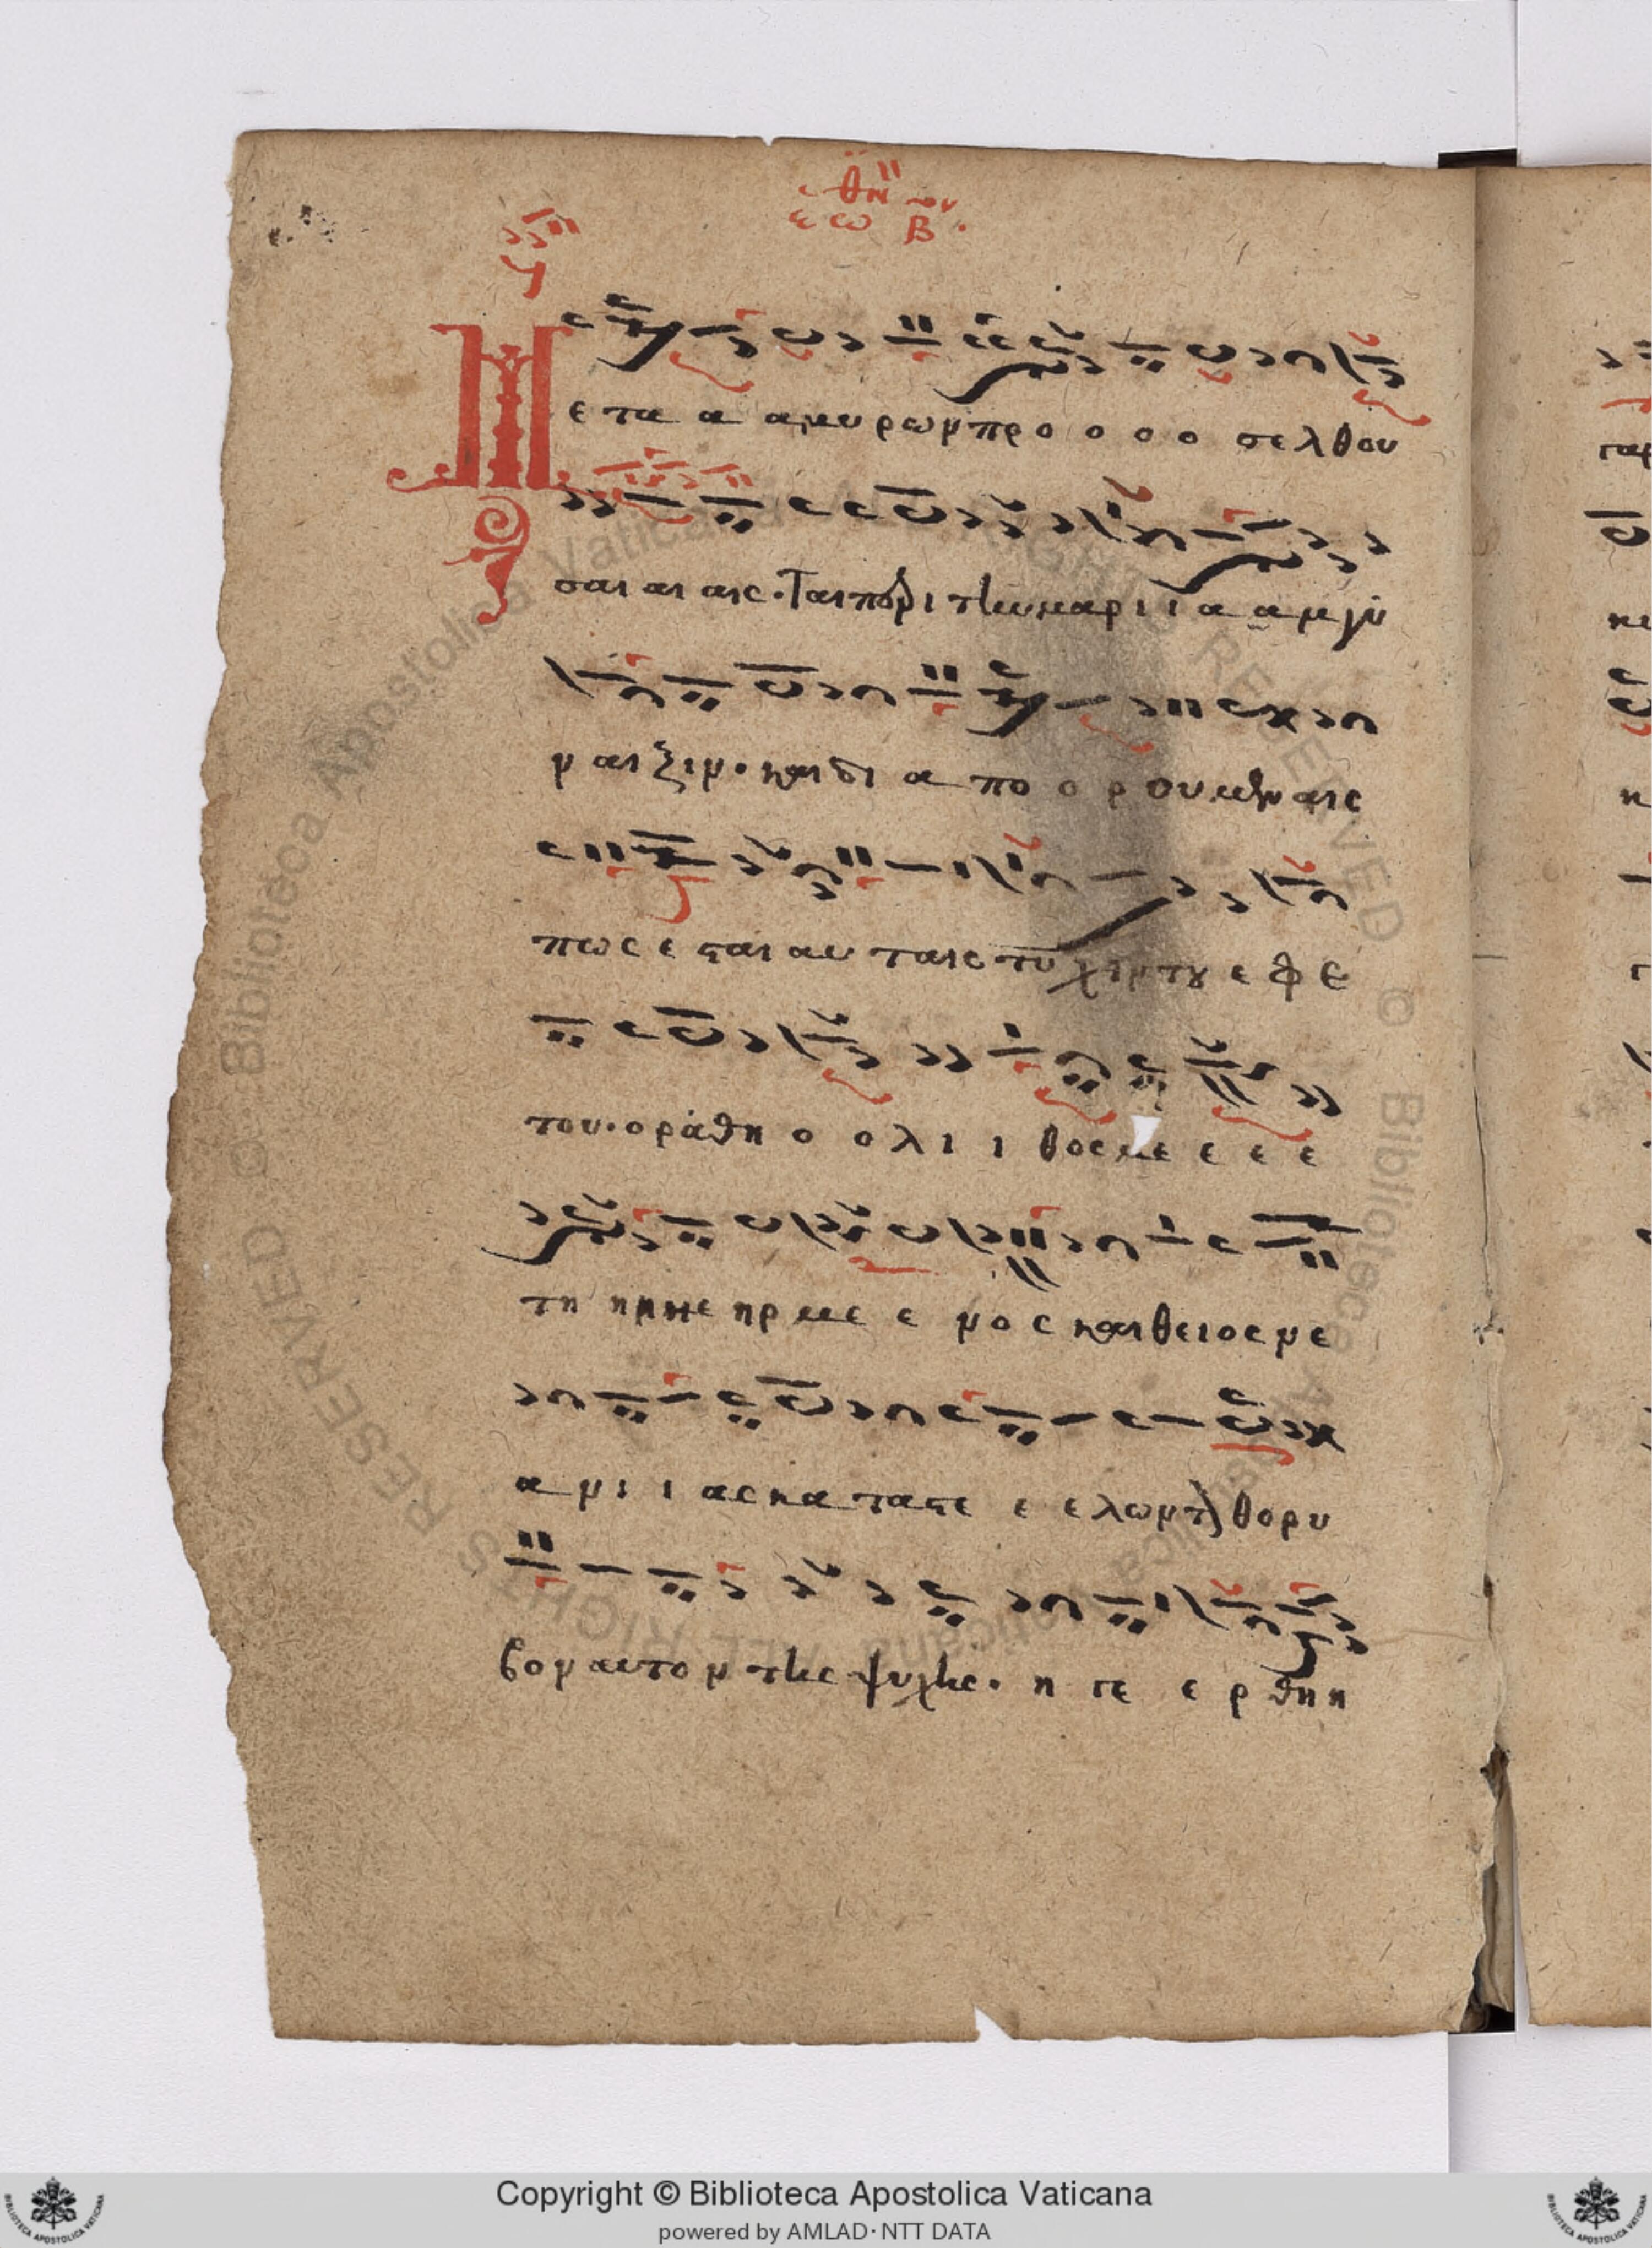 εω Β
Μ ε τα α α μυ ρων προ ο ο ο σελ θου
σαι αι αις · Ται περι την μαρι ι α α μ γυ
ν αι ξιν · και δι α πο ο ρ ου μεν αις
πως ε σται αυ ταις του χειν του ε φ ε
του · ο ρα θη ο ο λι ι θος με ε ε ε
τη η ρ με ε νος και θειος νε
α νι ι ας κα τα στε ε ε λων τον θορυ
βον αυτον της ψυχης · η γε ε ρ θη η
Copyright © Biblioteca Apostolica Vaticana
powered by AMLAD·NTT DATA